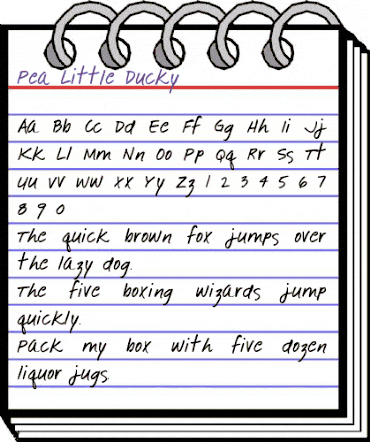 Pea Little Ducky
Aa Bb Cc Dd Ee Ff Gg Hh Ii Jj
Kk Ll Mm Nn Oo Pp Qq Rr Ss Tt
Uu Vv Ww Xx Yy Zz 1 2 3 4 5 6 7
8 9 0
The quick brown fox jumps over
the lazy dog.
The five boxing wizards jump
quickly.
Pack my box with five dozen
liquor jugs